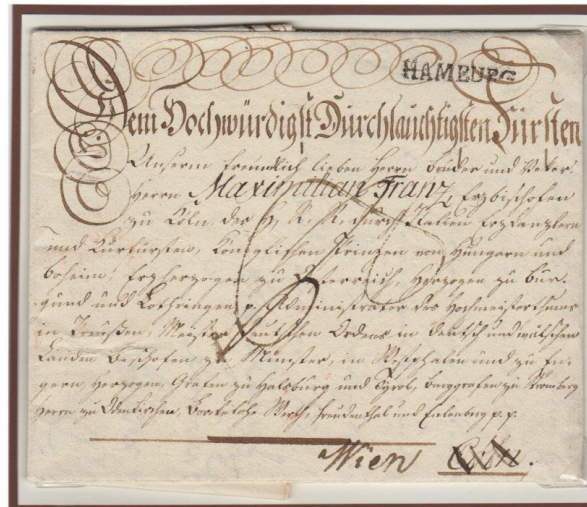 HAMBURG
Dem Hochwürdigst Durchlauchtigsten Fürsten
Unserm freundlich lieben Herrn Bruder und Vetter
Herrn Maximilian Franz, Erzbischofen
zu Cöln des H. R. R. durch Italien Erzkanzlern
und Kurfürsten, Königlichen Prinzen von Hungarn und
boheim, Erzherzogen zu Österreich, Herzogen zu Bur,
gund und Lothringen p. Administrator des Hochmeisterthums
in Preußen, Meister Deutschen Ordens in Deutsch und wälschen
Landen Bischofen zu Münster, in Westphalen und zu En,
gern, Herzogen, Grafen zu Habsburg und Tyrol, burggrafen zu Stromberg
Herrn zu Odenkirchen, Borkelohe, Werth, Freudenthal und Eulenberg p. p.
Wien Cöln.